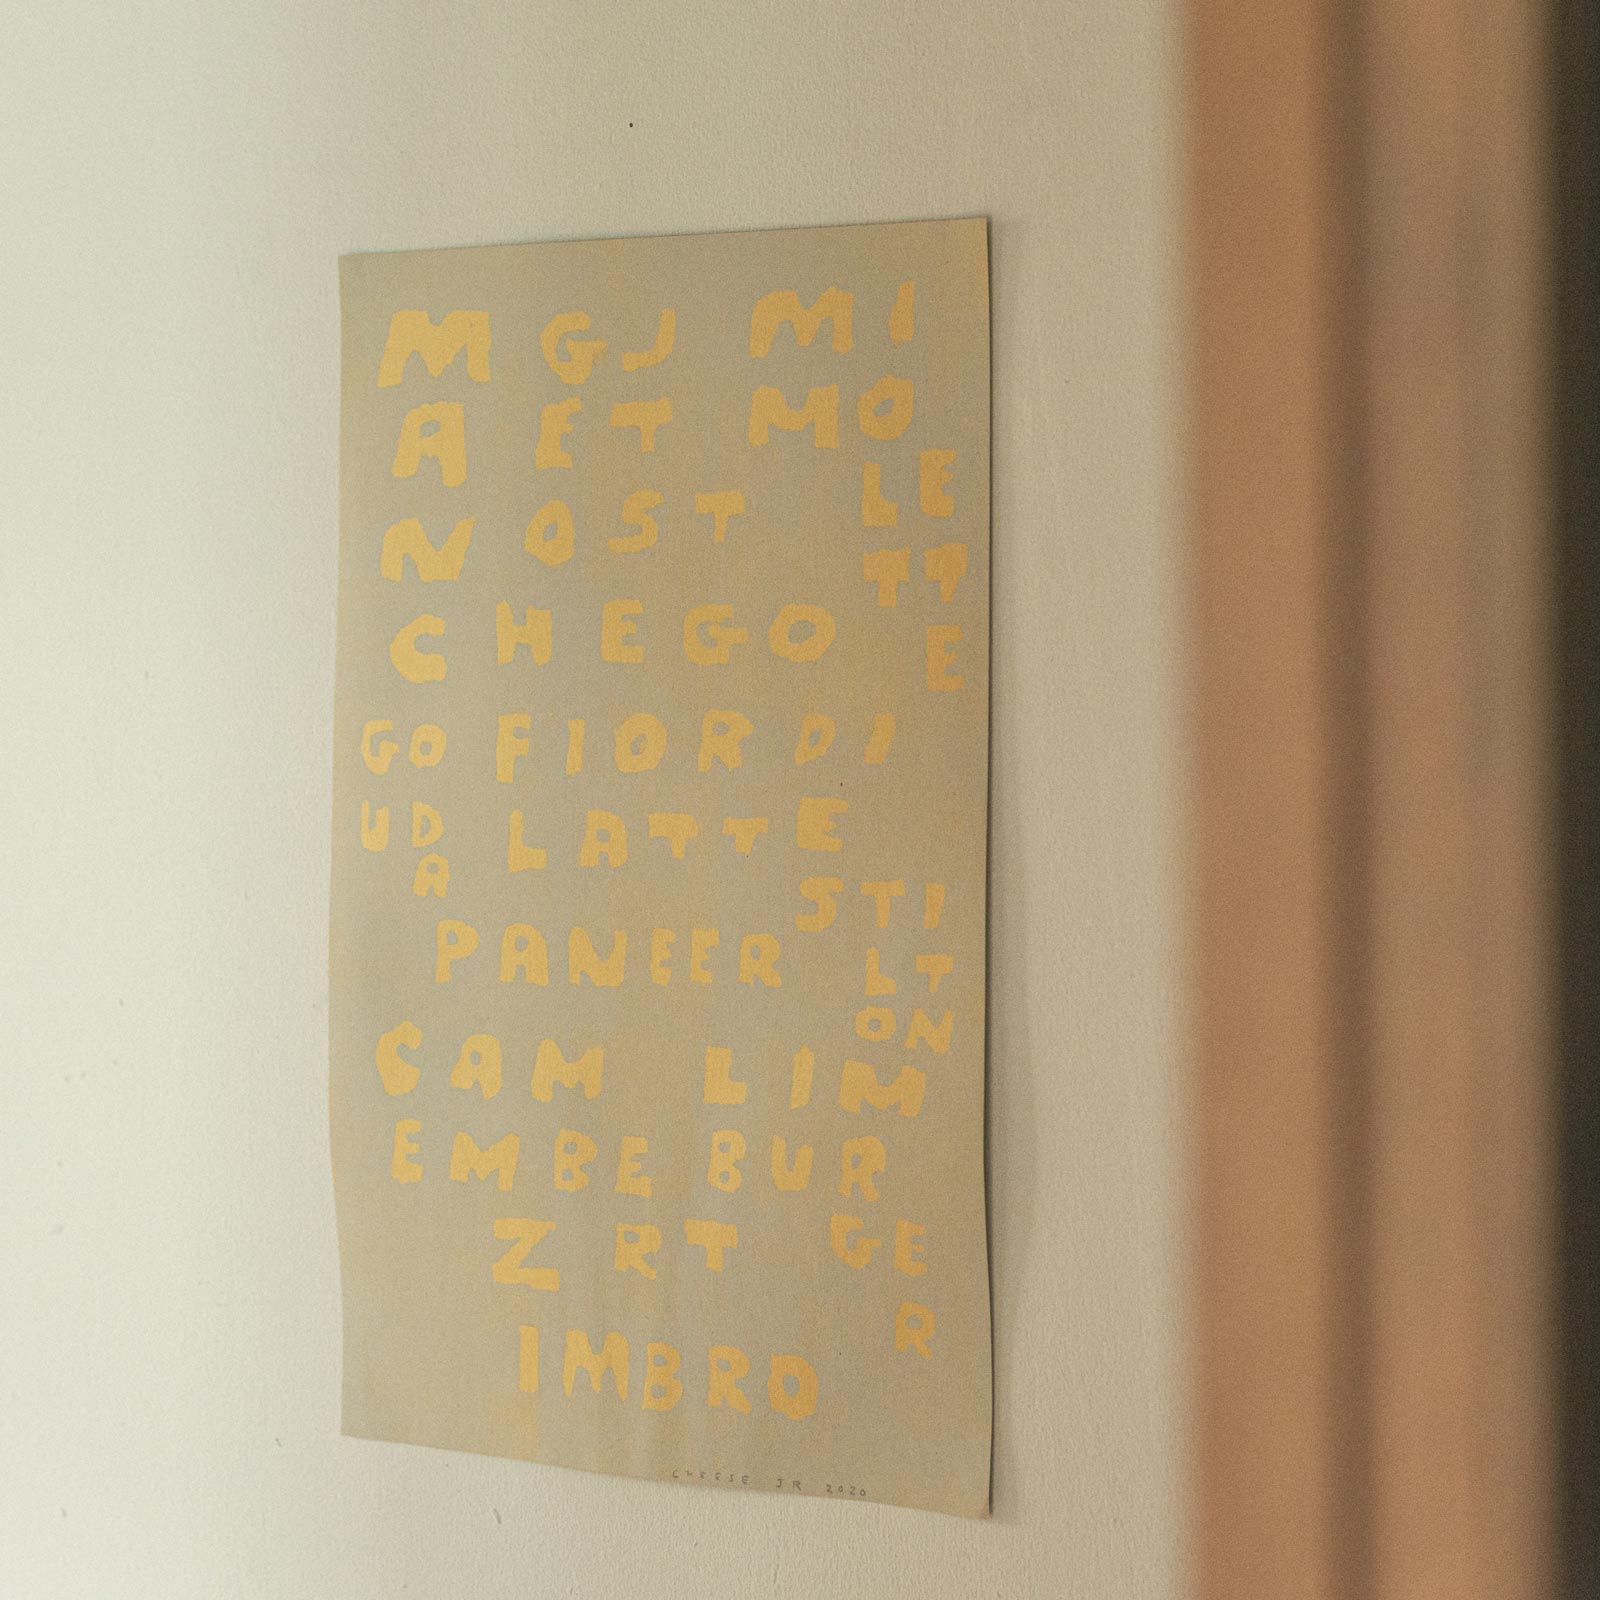 M GJ MI
A ET MO
N OST LE
TT
C HEGO E
GO FIOR DI
UD LATTE
A
STI
PANEER LT
ON
CAM LIM
EMBE BUR
Z RT GE
R
IMBRO
CHEESE JR 2020